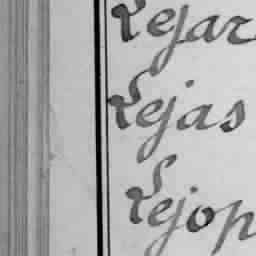 Lejar
Lejas
Lejop